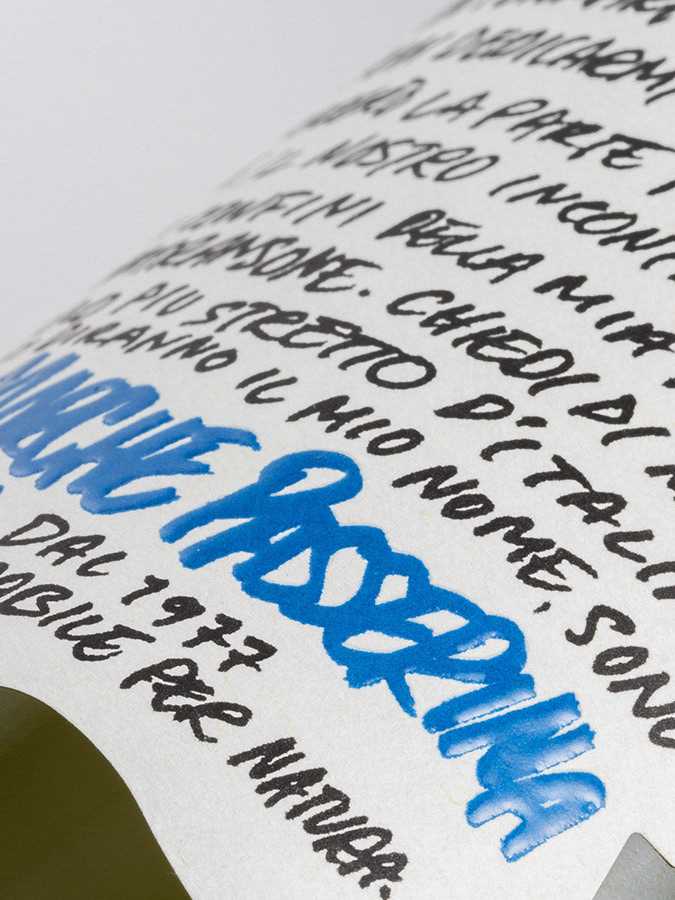 DEDICARMI
LA PARTE
IL NOSTRO INCONT
CONFINI DELLA MIA
CHIEDI DI
PIU STRETTO D'ITALI
IL MIO NOME, SONO
MARCHE PASSERINA
DAL 1977
ABILE PER NATURA.